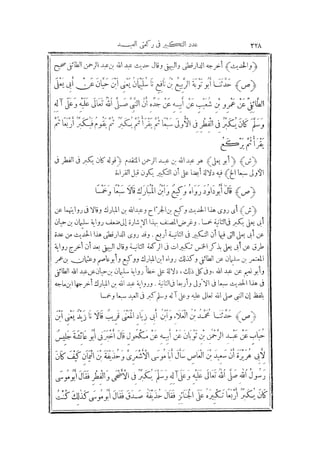 ٣٢٨ عدد التكبير فى ركعتى العيد
﴿والحديث﴾ أخرجه الدارقطنى والبيهقى وقال حديث عبد الله بن عبد الرحمن الطائفى صحيح
﴿ص﴾ حَدَّثَنَا أَبُو تَوْبَةَ الرَّبِيعُ بْنُ نَافِعٍ نَا سُلَيْمَانُ يَعْنِى ابْنَ حَيَّانَ عَنْ أَبِى يَعْلَى
الطَّائِفِىِّ عَنْ عَمْرِو بْنِ شُعَيْبٍ عَنْ أَبِيهِ عَنْ جَدِّهِ أَنَّ النَّبِىَّ صَلَّى اللهُ تَعَالَى عَلَيْهِ وَعَلَى آلِهِ
وَسَلَّمَ كَانَ يُكَبِّرُ فِى الْفِطْرِ فِى الْأُولَى سَبْعًا ثُمَّ يَقْرَأُ ثُمَّ يُكَبِّرُ ثُمَّ يَقُومُ فَيُكَبِّرُ أَرْبَعًا ثُمَّ
يَقْرَأُ ثُمَّ يَرْكَعُ
﴿ش﴾ ﴿أبو يعلى﴾ هو عبد الله بن عبد الرحمن المتقدم ﴿قوله كان يكبر فى الفطر فى
الأولى سبعا الخ﴾ فيه دلالة أيضا على أن التكبير يكون قبل القراءة
﴿ص﴾ قَالَ أَبُو دَاوُدَ رَوَاهُ وَكِيعٌ وَابْنُ الْمُبَارَكِ قَالَا سَبْعًا وَخَمْسًا
﴿ش﴾ أى روى هذا الحديث وكيع بن الجراح وعبد الله بن المبارك وقالا فى روايتهما عن
أبى يعلى يكبر فى الثانية خمسا. وغرض المصنف بهذا الإشارة إلى ضعف رواية سليمان بن حيان
عن أبى يعلى التى فيها أن التكبير فى الثانية أربع. وقد روى الدارقطنى هذا الحديث من عدة
طرق عن أبى يعلى بذكر الخمس تكبيرات فى الركعة الثانية وقال البيهقى بعد أن أخرج رواية
المعتمر بن سليمان عن الطائفى وكذلك رواه ابن المبارك ووكيع وأبو عاصم وعثمان بن عمر
وأبو نعيم عن عبد الله، وفى كل ذلك دلالة على خطأ رواية سليمان بن حيان عن عبد الله الطائفى
فى هذا الحديث سبعا فى الأولى وأربعا فى الثانية. ورواية عبد الله بن المبارك أخرجها ابن ماجه
بلفظ إن النبى صلى الله تعالى عليه وعلى آله وسلم كبر فى العيد سبعا وخمسا
﴿ص﴾ حَدَّثَنَا مُحَمَّدُ بْنُ الْعَلَاءِ وَابْنُ أَبِى زِيَادٍ الْمَعْنَى قَرِيبٌ قَالَا نَا زَيْدٌ يَعْنِى ابْنَ
حُبَابٍ عَنْ عَبْدِ الرَّحْمَنِ بْنِ ثَوْبَانَ عَنْ أَبِيهِ عَنْ مَكْحُولٍ قَالَ أَخْبَرَنِى أَبُو عَائِشَةَ جَلِيسٌ
لِأَبِى هُرَيْرَةَ أَنَّ سَعِيدَ بْنَ الْعَاصِ سَأَلَ أَبَا مُوسَى الْأَشْعَرِىَّ وَحُذَيْفَةَ بْنَ الْيَمَانِ كَيْفَ كَانَ
رَسُولُ اللهِ صَلَّى اللهُ تَعَالَى عَلَيْهِ وَعَلَى آلِهِ وَسَلَّمَ يُكَبِّرُ فِى الْأَضْحَى وَالْفِطْرِ فَقَالَ أَبُو مُوسَى
كَانَ يُكَبِّرُ أَرْبَعًا تَكْبِيرَهُ عَلَى الْجَنَائِزِ فَقَالَ حُذَيْفَةُ صَدَقَ فَقَالَ أَبُو مُوسَى كَذَلِكَ كُنْتُ